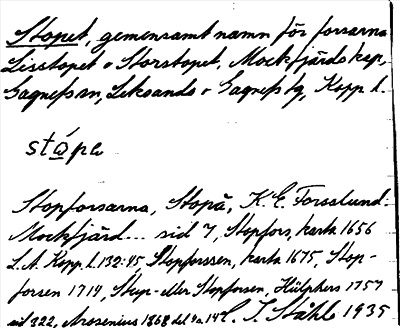 Stopet, gemensamt namn för forsarna
Lisstopet o Storstopet, Mockfjärds kap,
Gagnefs sn, Leksands o Gagnefs tg, Kopp. l.
stópe
Stopforsarna, Stopä, K. E. Forsslund:
Mockfjärd... sid 7, Stopfors, karta 1656
L. A. Kopp. l. 132:45 Stopforssen, karta 1675, Stop-
forsen 1714, Stup- eller Stopforsen, Hülphers 1757
sid 322, Arosenius 1868 del 4 a. 14 C. I. Ståhle 1935